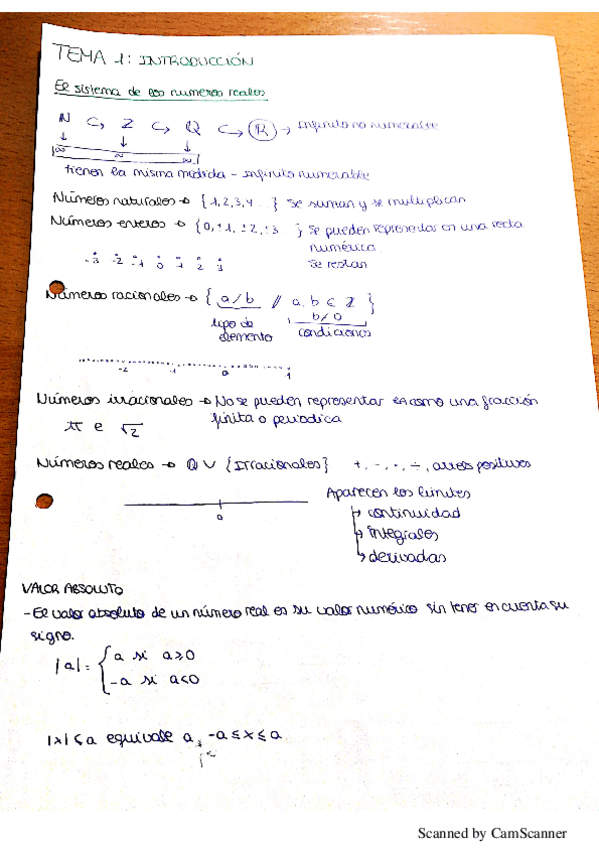 TEMA 1: INTRODUCCIÓN
El sistema de los numeros reales
N ↪ Z ↪ Q ↪ R → Infinito no numerable
↓ ↓ ↓
∞ ∞ ∞
tienen la misma medida - infinito numerable
Números naturales → {1,2,3,4 ... } se suman y se multiplican
Números enteros → {0, ±1, ±2, ±3 ... } se pueden representar en una recta
numérica
-3 -2 -1 0 1 2 3 se restan
Números racionales → { a/b // a, b ∈ Z }
b≠0
tipo de condiciones
elemento
-2 -1 0 1
Números irracionales → No se pueden representar como una fracción
π e √2 finita o periodica
Números reales → Q ∪ {Irracionales} +, -, ·, ÷, positivos
Aparecen los límites
0 → continuidad
→ integrales
→ derivadas
VALOR ABSOLUTO
- El valor absoluto de un número real es su valor numérico sin tener en cuenta su
signo.
|a| = { a si a≥0
-a si a<0
|x| ≤ a equivale a -a ≤ x ≤ a
Scanned by CamScanner